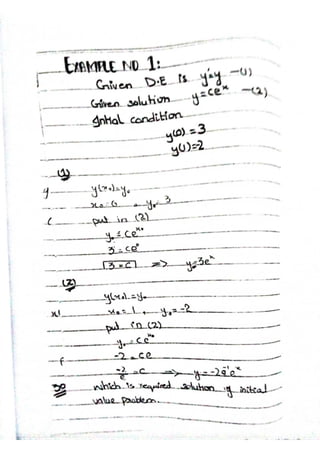 EXAMPLE NO 1:
Given D.E is y'=y -(1)
Given solution y=ceˣ -(2)
Initial condition
y(0)=3
y(1)=2
(1)
y(x₀)=y₀
x₀=0 y₀=3
put in (2)
y₀=ceˣ⁰
3=ce⁰
3=C => y=3eˣ
(2)
y(x₀)=y₀
x₀=1, y₀=-2
put in (2)
y₀=ceˣ⁰
-2=ce
-2/e=C => y=-2e⁻¹eˣ
So which is required solution of initial
value problem.